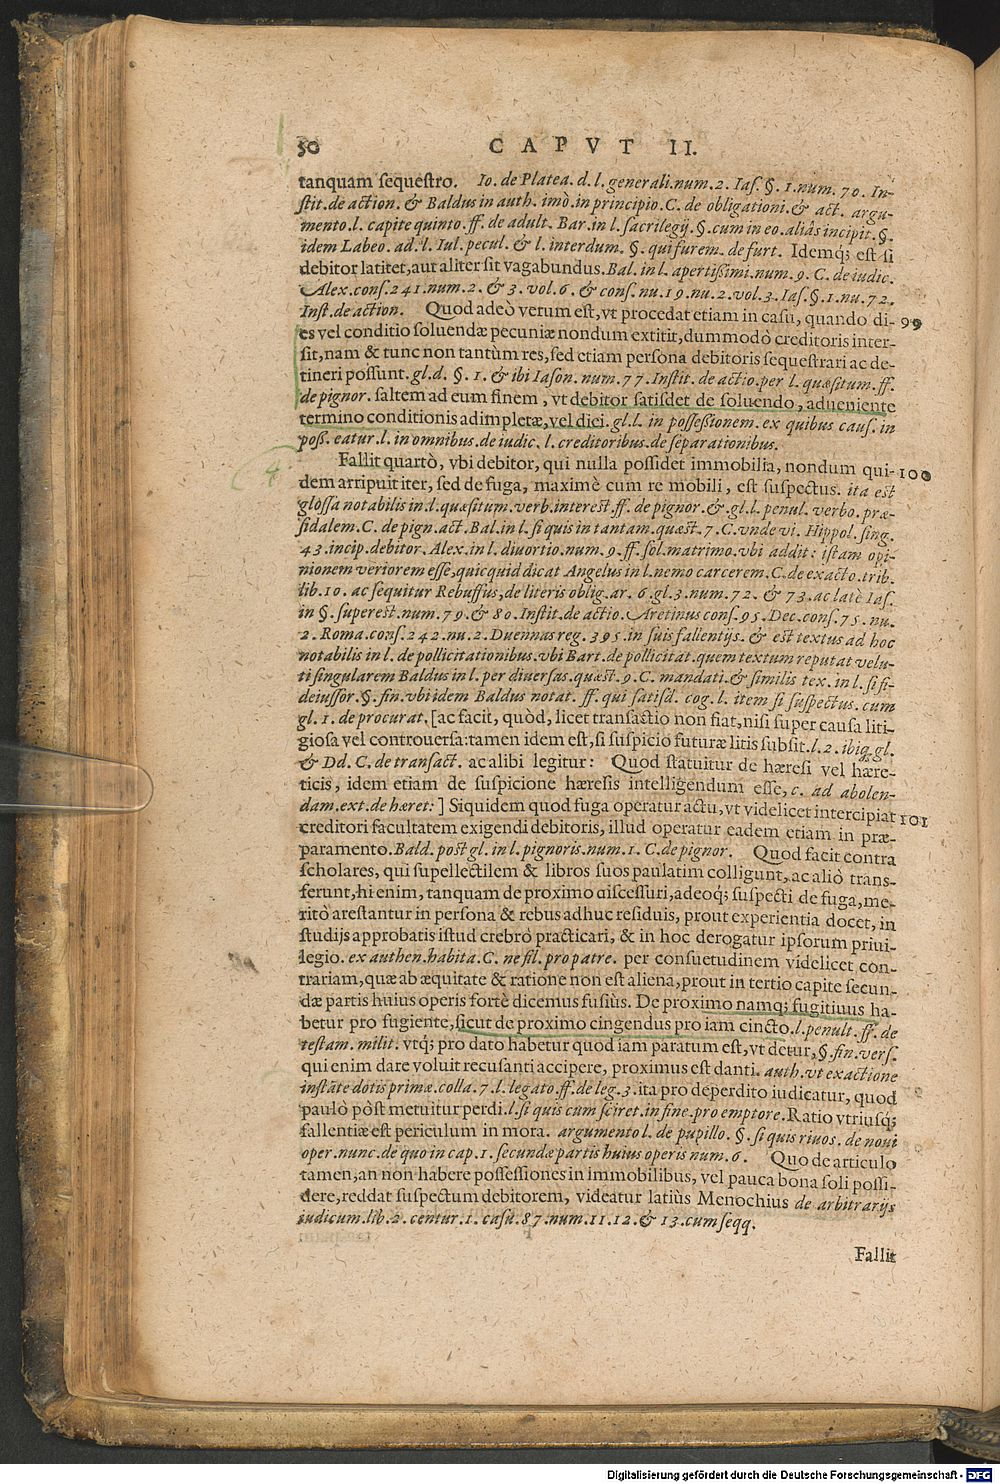 50 CAPVT II.
tanquam sequestro. Io. de Platea. d. l. generali. num. 2. Ias. §. 1. num. 70. In-
stit. de action. & Baldus in auth. imò. in principio. C. de obligationi. & act. argu-
mento. l. capite quinto. ff. de adult. Bar. in l. sacrilegij. §. cum in eo. aliâs incipit. §.
idem Labeo. ad. l. Iul. pecul. & l. interdum. §. qui furem. de furt. Idemq; est si
debitor latitet, aut aliter sit vagabundus. Bal. in l. apertißimi. num. 9. C. de iudic.
Alex. cons. 241. num. 2. & 3. vol. 6. & cons. nu. 19. nu. 2. vol. 3. Ias. §. 1. nu. 72.
Inst. de action. Quod adeò verum est, vt procedat etiam in casu, quando di- 99
es vel conditio soluendæ pecuniæ nondum extitit, dummodò creditoris inter-
sit, nam & tunc non tantùm res, sed etiam persona debitoris sequestrari ac de-
tineri possunt. gl. d. §. 1. & ibi Iason. num. 77. Instit. de actio. per l. quæsitum. ff.
de pignor. saltem ad eum finem, vt debitor satisdet de soluendo, adueniente
termino conditionis adimpletæ, vel diei. gl. l. in possessionem. ex quibus caus. in
poß. eatur. l. in omnibus. de iudic. l. creditoribus. de separationibus.
4. Fallit quartò, vbi debitor, qui nulla possidet immobilia, nondum qui- 100
dem arripuit iter, sed de fuga, maximè cum re mobili, est suspectus. ita est
glossa notabilis in. l. quæsitum. verb. interest. ff. de pignor. &. gl. l. penul. verbo. præ-
sidalem. C. de pign. act. Bal. in l. si quis in tantam. quæst. 7. C. vnde vi. Hippol. sing.
43. incip. debitor. Alex. in l. diuortio. num. 9. ff. sol. matrimo. vbi addit: istam opi-
nionem veriorem esse, quicquid dicat Angelus in l. nemo carcerem. C. de exacto. trib.
lib. 10. ac sequitur Rebuffus, de literis oblig. ar. 6. gl. 3. num. 72. & 73. ac latè Ias.
in §. superest. num. 79. & 80. Instit. de actio. Aretinus cons. 95. Dec. cons. 75. nu.
2. Roma. cons. 242. nu. 2. Duennas reg. 395. in suis fallentijs. & est textus ad hoc
notabilis in l. de pollicitationibus. vbi Bart. de pollicitat. quem textum reputat velu-
ti singularem Baldus in l. per diuersas. quæst. 9. C. mandati. & similis tex. in l. si fi-
deiussor. §. fin. vbi idem Baldus notat. ff. qui satisd. cog. l. item si suspectus. cum
gl. 1. de procurat. [ac facit, quòd, licet transactio non fiat, nisi super causa liti-
giosa vel controuersa: tamen idem est, si suspicio futuræ litis subsit. l. 2. ibiq. gl.
& Dd. C. de transact. ac alibi legitur: Quod statuitur de hæresi vel hære-
ticis, idem etiam de suspicione hæresis intelligendum esse, c. ad abolen-
dam. ext. de hæret:] Siquidem quod fuga operatur actu, vt videlicet intercipiat 101
creditori facultatem exigendi debitoris, illud operatur eadem etiam in præ-
paramento. Bald. post gl. in l. pignoris. num. 1. C. de pignor. Quod facit contra
scholares, qui supellectilem & libros suos paulatim colligunt, ac aliò trans-
ferunt, hi enim, tanquam de proximo discessuri, adeoq; suspecti de fuga, me-
ritò arestantur in persona & rebus adhuc residuis, prout experientia docet, in
studijs approbatis istud crebrò practicari, & in hoc derogatur ipsorum priui-
legio. ex authen. habita. C. ne fil. pro patre. per consuetudinem videlicet con-
trariam, quæ ab æquitate & ratione non est aliena, prout in tertio capite secun-
dæ partis huius operis fortè dicemus fusiùs. De proximo namq; fugitiuus ha-
betur pro fugiente, sicut de proximo cingendus pro iam cincto. l. penult. ff. de
testam. milit. vtq; pro dato habetur quod iam paratum est, vt detur, §. fin. vers.
qui enim dare voluit recusanti accipere, proximus est danti. auth. vt exactione
instãte dotis primæ. colla. 7. l. legato. ff. de leg. 3. ita pro deperdito iudicatur, quod
paulò pòst metuitur perdi. l. si quis cum sciret. in fine. pro emptore. Ratio vtriusq;
fallentiæ est periculum in mora. argumento l. de pupillo. §. si quis riuos. de noui
oper. nunc. de quo in cap. 1. secundæ partis huius operis num. 6. Quo de articulo
tamen, an non habere possessiones in immobilibus, vel pauca bona soli possi-
dere, reddat suspectum debitorem, videatur latiùs Menochius de arbitrarijs
iudicum. lib. 2. centur. 1. casu. 87. num. 11. 12. & 13. cum seqq.
Fallit
Digitalisierung gefördert durch die Deutsche Forschungsgemeinschaft - DFG